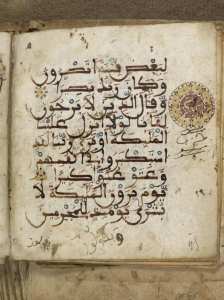 لبعض فتنة أتصبرون
وكان ربك بصيرا
وقال الذين لا يرجون
لقاءنا لولا أنزل علينا
الملئكة أو نرى ربنا لقد
استكبروا في أنفسهم
وعتو عتوا كبيرا
يوم يرون الملئكة لا
بشرى يومئذ للمجرمين